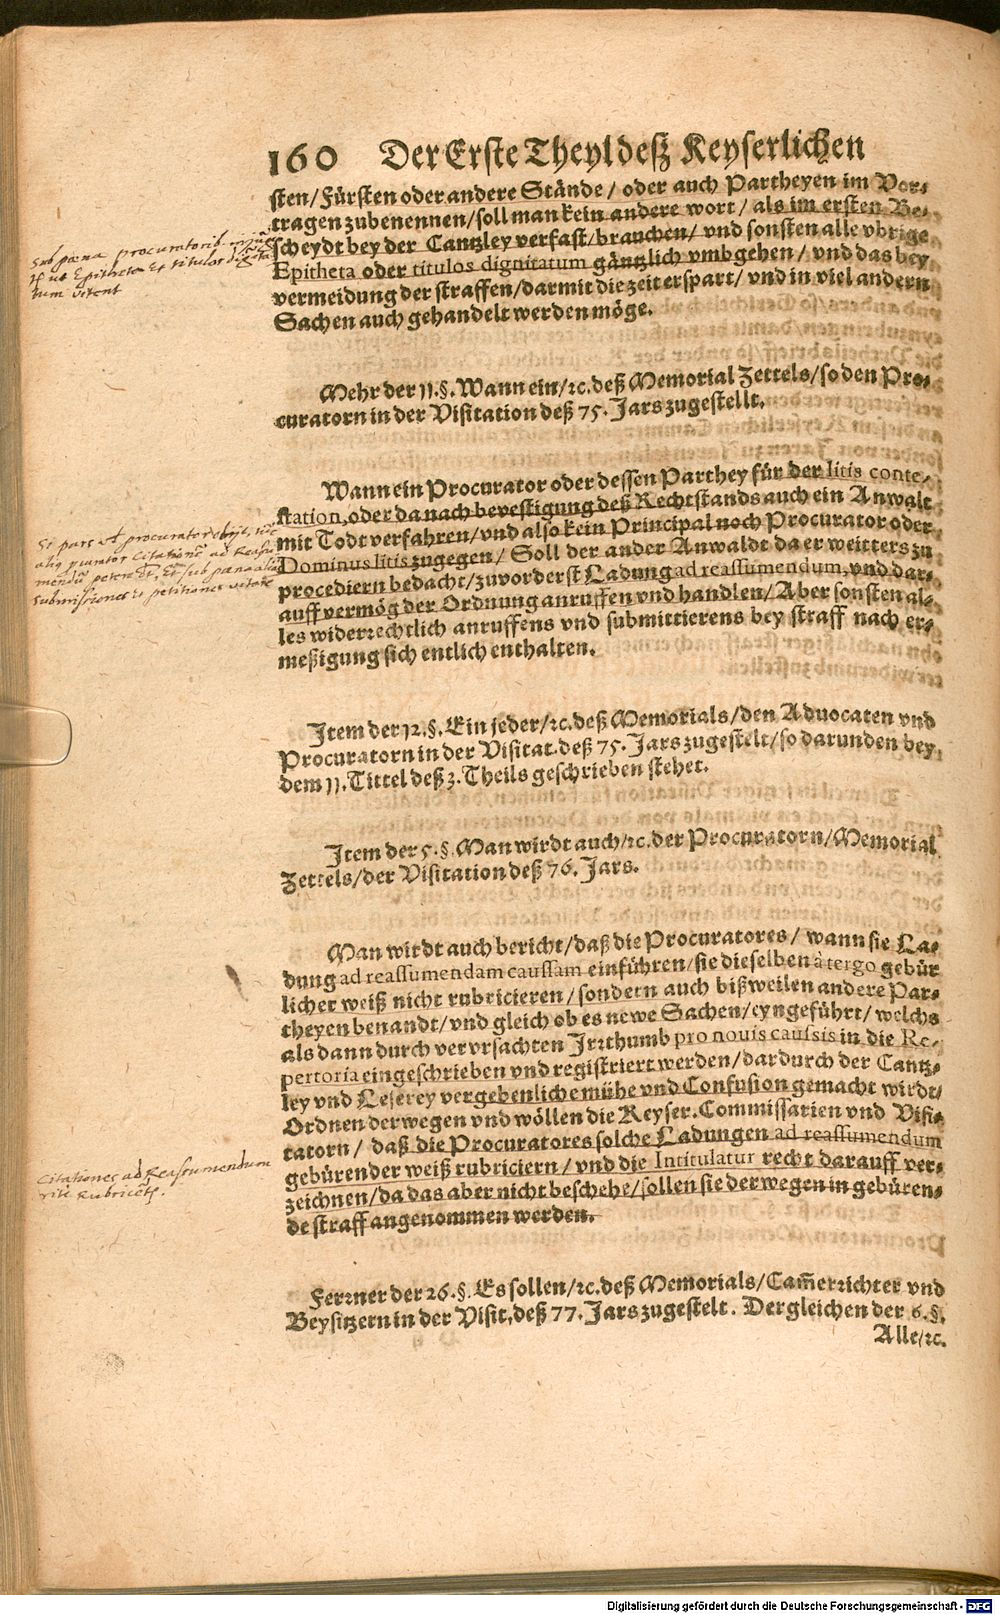 160 Der Erste Theyl deß Keyserlichen
sten/Fürsten oder andere Stände/ oder auch Partheyen im Vor-
tragen zubenennen/soll man kein andere wort/ als im ersten Be-
scheydt bey der Cantzley verfast/brauchen/ vnd sonsten alle vbrige
Epitheta oder titulos dignitatum gäntzlich vmbgehen/ vnd das bey
vermeidung der straffen/darmit die zeit erspart/ vnd in viel andern
Sachen auch gehandelt werden möge.
sub pœna procuratorib
ut Epitheta et titulos dignita
tum vitent
Mehr der 11.§. Wann ein/ꝛc. deß Memorial Zettels/so den Pro-
curatorn in der Visitation deß 75. Jars zugestellt.
Wann ein Procurator oder dessen Parthey für der litis conte-
station, oder da nach bevestigung deß Rechtstands auch ein Anwalt
mit Todt verfahren/vnd also kein Principal noch Procurator oder
Dominus litis zugegen/ Soll der ander Anwaldt da er weitters zu
procediern bedacht/zuvorderst Ladung ad reassumendum, vnd dar-
auff vermög der Ordnung anruffen vnd handlen/Aber sonsten al-
les widerꝛechtlich anruffens vnd submittierens bey straff nach er-
meßigung sich entlich enthalten.
Si pars vel procurator
citationem ad Reassu
mendum petere et sub pœna
submissiones et petitiones vitare
Item der 12.§. Ein jeder/ꝛc. deß Memorials/den Aduocaten vnd
Procuratorn in der Visitat. deß 75. Jars zugestelt/so darunden bey
dem 11. Tittel deß 3. Theils geschrieben stehet.
Item der 5.§. Man wirdt auch/ꝛc. der Procuratorn/Memorial
Zettels/der Visitation deß 76. Jars.
Man wirdt auch bericht/daß die Procuratores/ wann sie La-
dung ad reassumendam caussam einführen/sie dieselben à tergo gebür
licher weiß nicht rubricieren/sondern auch bißweilen andere Par-
theyen benandt/vnd gleich ob es newe Sachen/eyngeführt/welchs
als dann durch vervrsachten Jrꝛthumb pro nouis caussis in die Re-
pertoria eingeschrieben vnd registriert werden/dardurch der Cantz-
ley vnd Leserey vergebenliche mühe vnd Confusion gemacht wirdt/
Ordnen derwegen vnd wöllen die Keyser. Commissarien vnd Visi-
tatorn/ daß die Procuratores solche Ladungen ad reassumendum
gebürender weiß rubriciern/vnd die Intitulatur recht darauff ver-
zeichnen/da das aber nicht beschehe/sollen sie derwegen in gebüren-
de straff angenommen werden.
Citationes ad Reassumendum
rite Rubricent.
Ferꝛner der 26.§. Es sollen/ꝛc. deß Memorials/Cam̃erꝛichter vnd
Beysitzern in der Visit. deß 77. Jars zugestelt. Dergleichen der 6.§.
Alle/ꝛc.
Digitalisierung gefördert durch die Deutsche Forschungsgemeinschaft - DFG